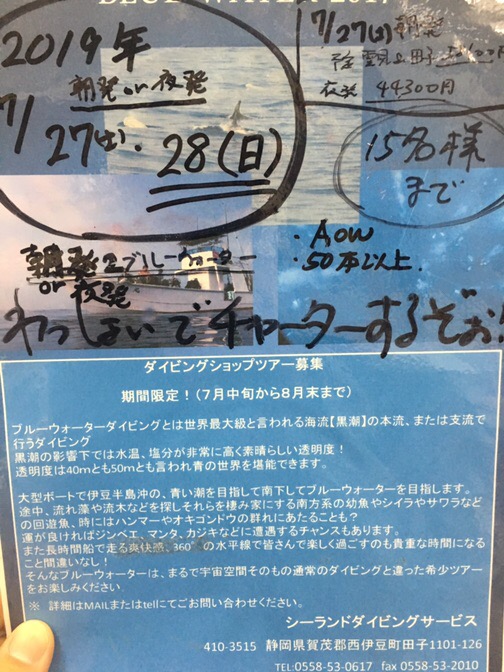 BLUE WATER 2017
2019年
朝発or夜発
7/27(土)、28(日)
7/27(土)朝発
夜発 44300円
15名様
まで
・AOW
・50本以上.
朝発2ブルーウォーター
or夜発
わっしょいでチャーターするぞぉ!
ダイビングショップツアー募集
期間限定!(7月中旬から8月末まで)
ブルーウォーターダイビングとは世界最大級と言われる海流【黒潮】の本流、または支流で
行うダイビング
黒潮の影響下では水温、塩分が非常に高く素晴らしい透明度!
透明度は40mとも50mとも言われ青の世界を堪能できます。
大型ボートで伊豆半島沖の、青い潮を目指して南下してブルーウォーターを目指します。
途中、流れ藻や流木などを探しそれらを棲み家にする南方系の幼魚やシイラやサワラなど
の回遊魚、時にはハンマーやオキゴンドウの群れにあたることも?
運が良ければジンベエ、マンタ、カジキなどに遭遇するチャンスもあります。
また長時間船で走る爽快感、360°の水平線で皆さんで楽しく過ごすのも貴重な時間になる
こと間違いなし!
そんなブルーウォーターは、まるで宇宙空間そのもの通常のダイビングと違った希少ツアー
をお楽しみください
※ 詳細はMAILまたはtelにてご問い合わせください。
シーランドダイビングサービス
410-3515 静岡県賀茂郡西伊豆町田子1101-126
TEL:0558-53-0617 fax 0558-53-2010